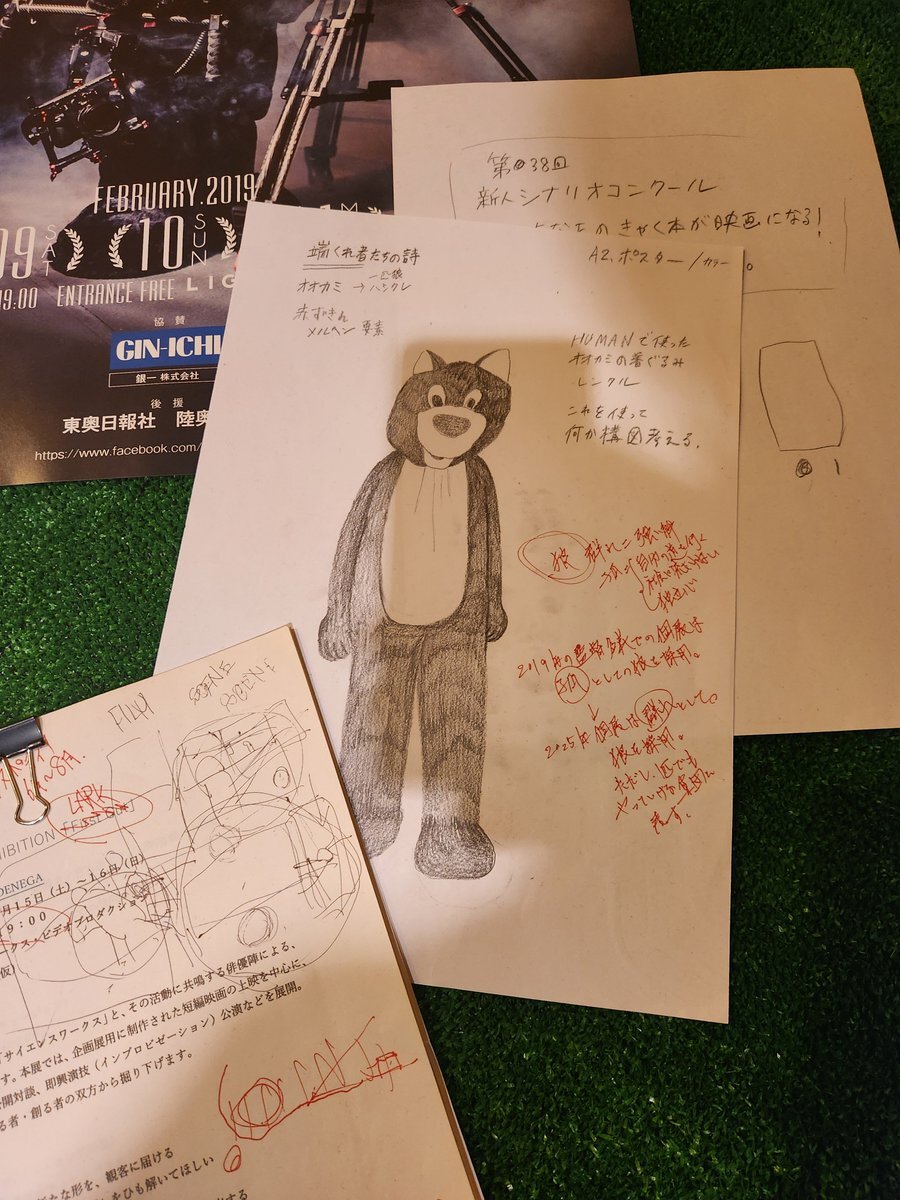 FEBRUARY.2019
09 SAT
10 SUN
19:00 ENTRANCE FREE
協賛
GIN-ICHI
銀一 株式会社
後援
東奥日報社 陸奥
https://www.facebook.com/
第38回
新人シナリオコンクール
のきゃく本が映画になる!
A2,ポスター/カラー
端くれ者たちの詩
一匹狼
オオカミ→ハシクレ
赤ずきん
メルヘン要素
HUMANで使った
オオカミの着ぐるみ
レンタル
これを使って
何か構図考える。
狼 群れ=強い絆
孤=自分の道を行く
独立心
2019年の
での個展は
孤としての狼を採用。
↓
2025年 個展は群れとして。
狼を採用。
ただし一匹でも
やっていける集団
FILM
SCENE
LARK
HIBITION
DENEGA
月15日(土)~16日(日)
19:00
ークス・ビデオプロダクション
仮)
サイエンスワークス」と、その活動に共鳴する俳優陣による、
す。本展では、企画展用に制作された短編映画の上映を中心に、
開対談、即興演技(インプロビゼーション)公演などを展開。
る者・創る者の双方から掘り下げます。
たな形を、観客に届ける
をひも解いてほしい
する